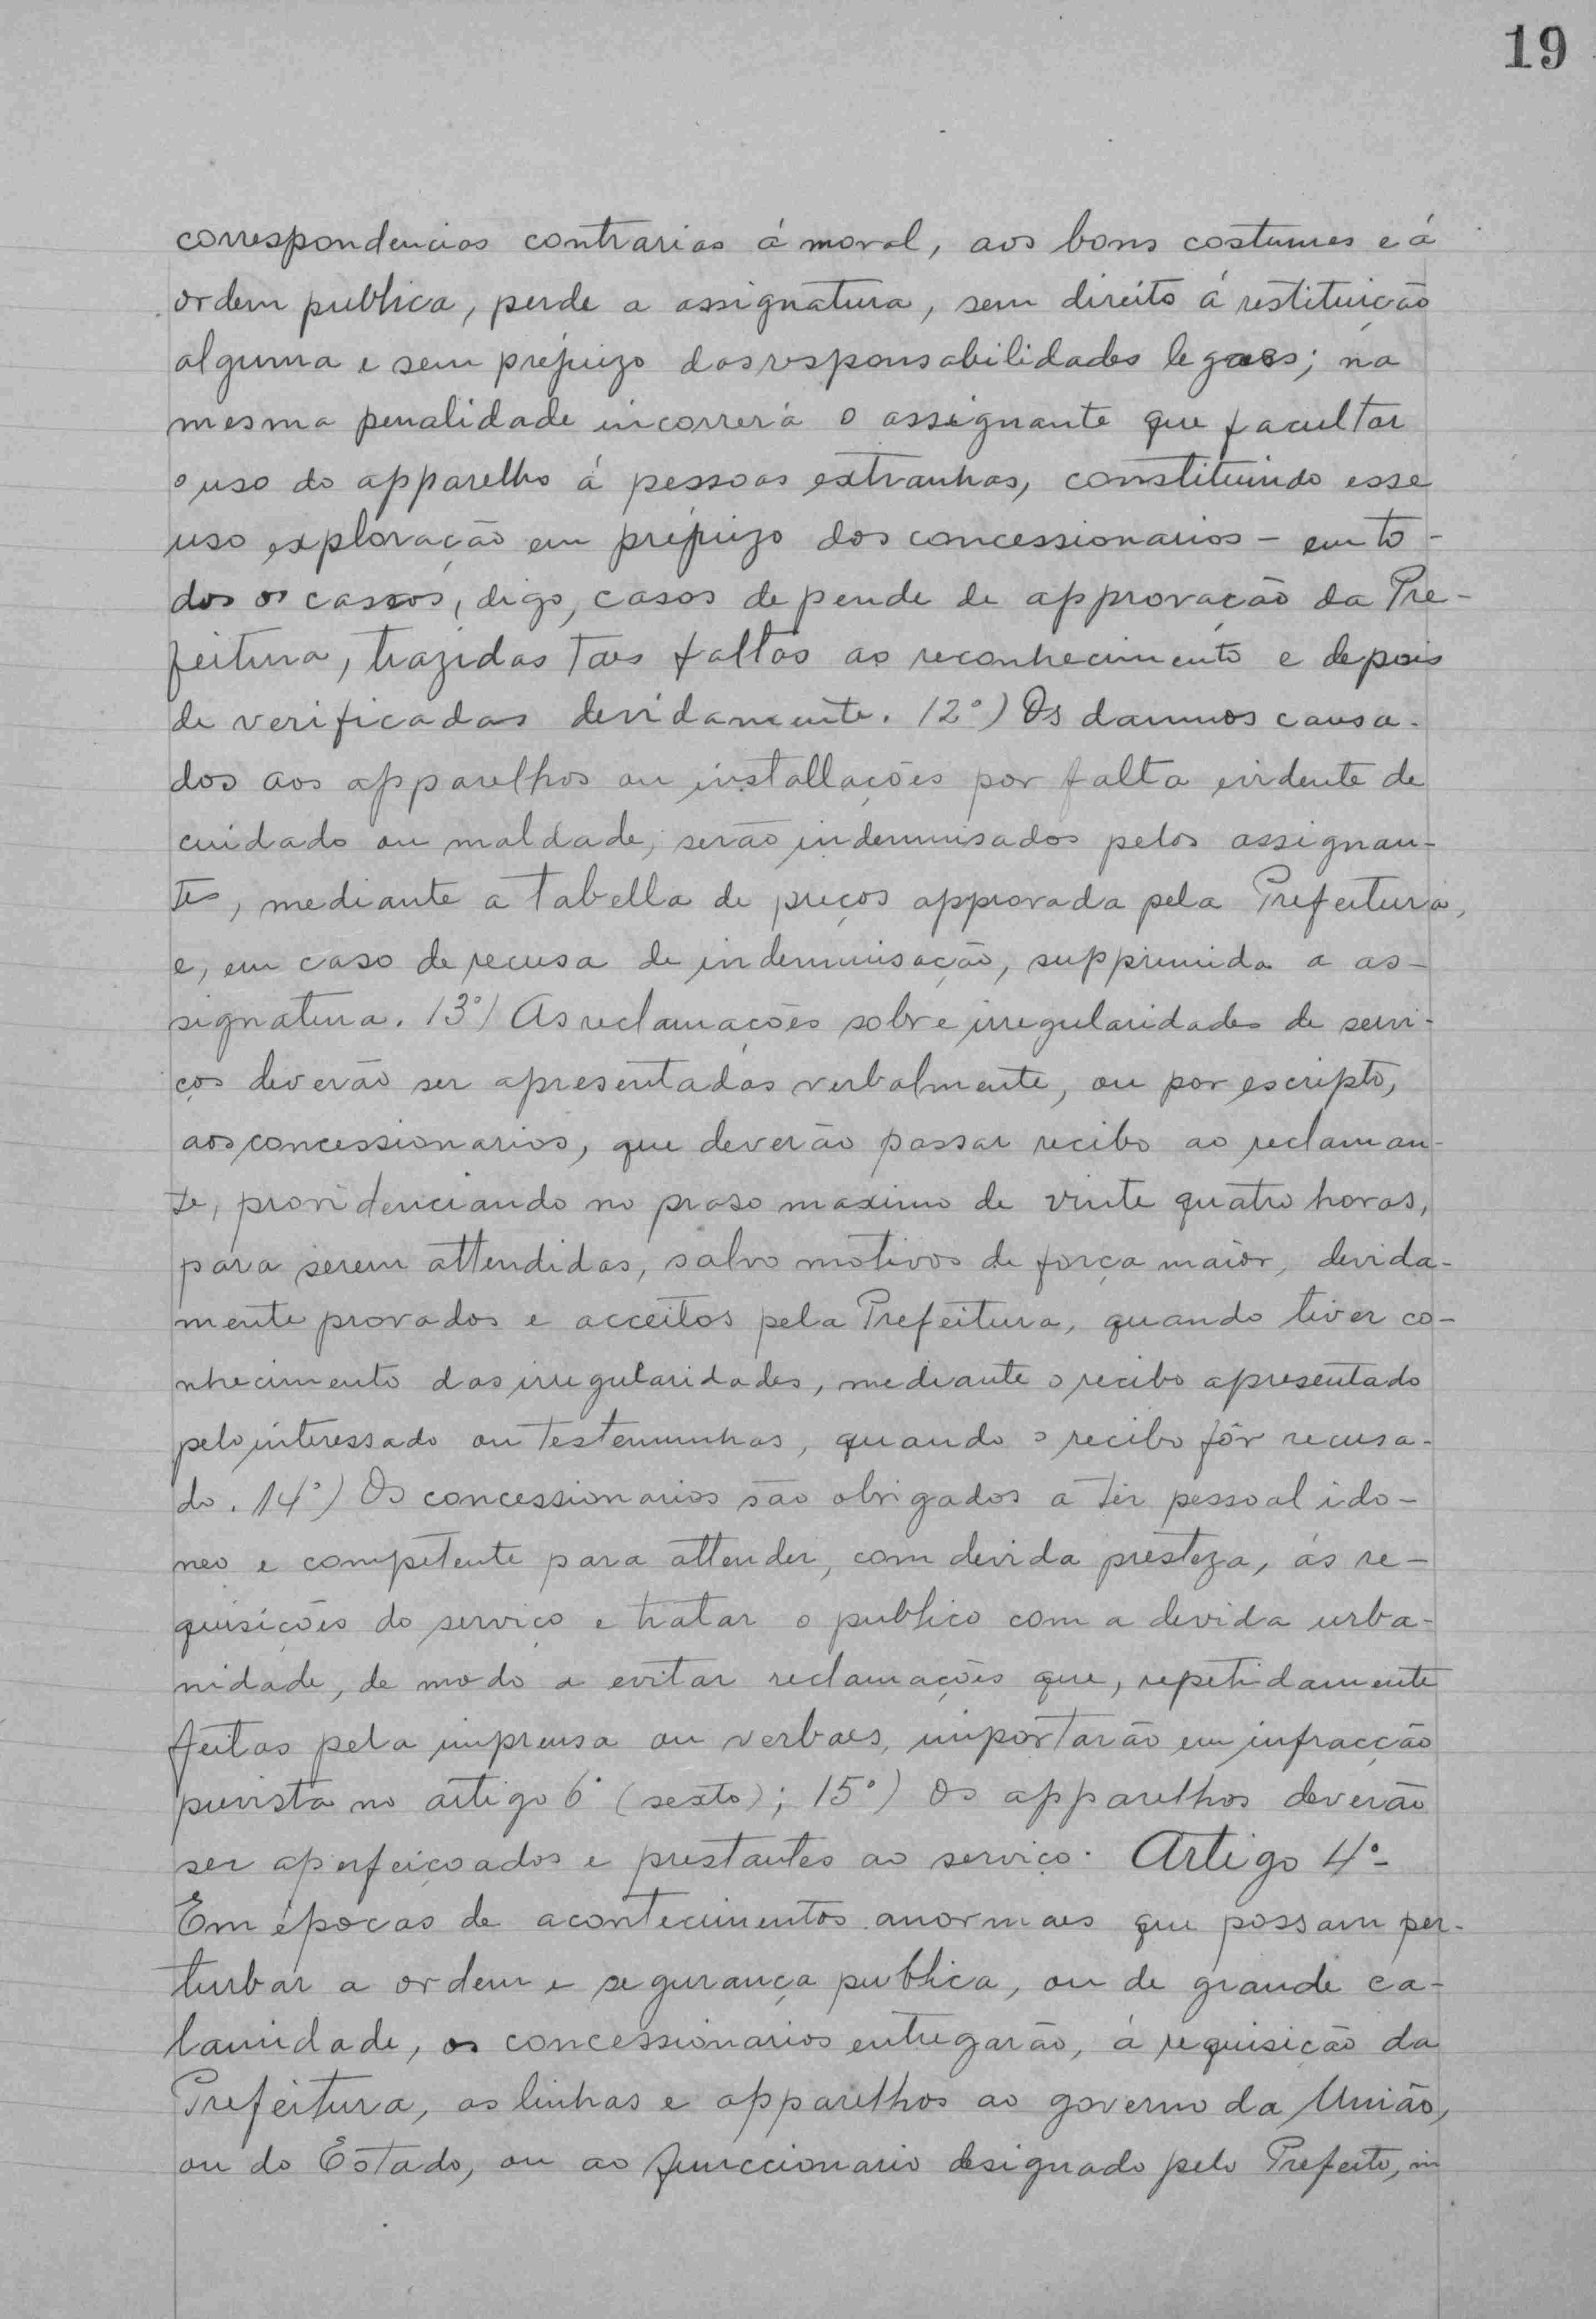 19
correspondencias contrarias á moral, aos bons costumes e á
ordem publica, perde a assignatura, sem direito á restituição
alguma e sem prejuizo das responsabilidades legaes; na
mesma penalidade incorrerá o assignante que facultar
o uso do apparelho á pessoas extranhas, constituindo esse
uso exploração em prejuizo dos concessionarios - em to-
dos os cassos, digo, casos depende de approvação da Pre-
feitura, trazidas taes faltas ao reconhecimento e depois
de verificadas devidamente. 12º) Os damnos causa-
dos aos apparelhos ou installações por falta evidente de
cuidado ou maldade, serão indemnisados pelos assignan-
tes, mediante a tabella de preços approvada pela Prefeitura,
e, em caso de recusa de indemnisação, supprimida a as-
signatura. 13º) As reclamações sobre irregularidades de servi-
ços deverão ser apresentadas verbalmente, ou por escripto,
aos concessionarios, que deverão passar recibo ao reclaman-
te, providenciando no praso maximo de vinte quatro horas,
para serem attendidas, salvo motivos de força maior, devida-
mente provados e acceitos pela Prefeitura, quando tiver co-
nhecimento das irregularidades, mediante o recibo apresentado
pelo interessado ou testemunhas, quando o recibo fôr recusa-
do. 14º) Os concessionarios são obrigados a ter pessoal ido-
neo e competente para attender, com devida presteza, ás re-
quisições do serviço e tratar o publico com a devida urba-
nidade, de modo a evitar reclamações que, repetidamente
feitas pela imprensa ou verbaes, importarão em infracção
prevista no artigo 6º (sexto); 15º) Os apparelhos deverão
ser aperfeiçoados e prestantes ao serviço. Artigo 4º-
Em épocas de acontecimentos anormaes que possam per-
turbar a ordem e segurança publica, ou de grande ca-
lamidade, os concessionarios entregarão, á requisição da
Prefeitura, as linhas e apparelhos ao governo da União,
ou do Estado, ou ao funccionario designado pelo Prefeito, in